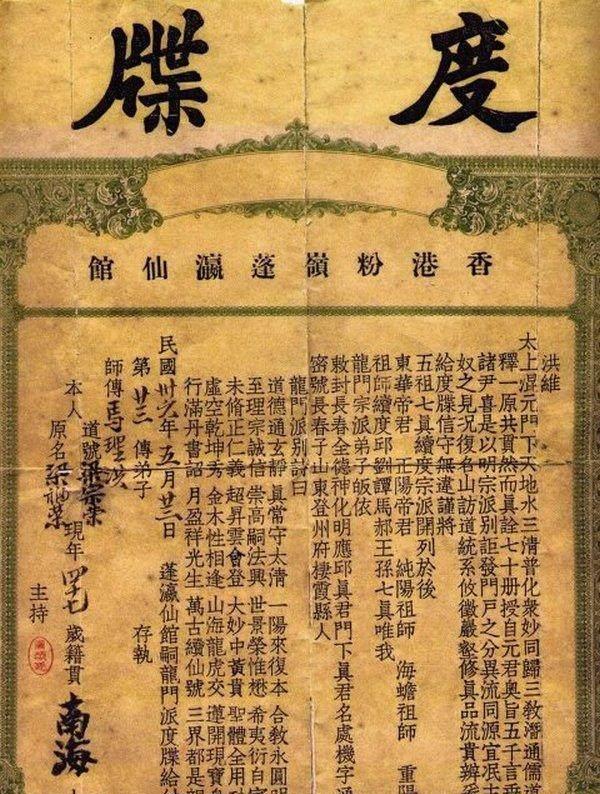 度牒
香港粉嶺蓬瀛仙館
洪維
太上混元門下天地水三清普化衆妙同歸三敎潛通儒道
釋一原共貫然而眞詮七十册授自元君奥旨五千言垂
諸尹喜是以明宗派別詎發門戶之分異流同源宜泯主
奴之見況復名山訪道統系攸徵巖壑修眞品流貴辨
給度牒信守無違謹將
五祖七眞續度宗派開列於後
東華帝君 正陽帝君 純陽祖師 海蟾祖師 重陽
祖師續度邱劉譚馬郝王孫七眞唯我
龍門宗派弟子皈依
敕封長春全德神化明應邱眞君門下眞君名處機字通
密號長春子山東登州府棲霞縣人
龍門派別詩曰
道德通玄靜 眞常守太清 一陽來復本 合敎永圓明
至理宗誠信 崇高嗣法興 世景榮惟懋 希夷衍自寧
未脩正仁義 超昇雲會登 大妙中黃貴 聖體全用功
虛空乾坤秀 金木性相逢 山海龍虎交 蓮開現寶身
行滿丹書詔 月盈祥光生 萬古續仙號 三界都是親
民國卅六年五月廿三日 蓬瀛仙館嗣龍門派度牒給付
第廿三傳弟子 存執
師傳馬聖
道號梁宗榮
本人 現年四十七歲籍貫南海
原名梁福榮
主持